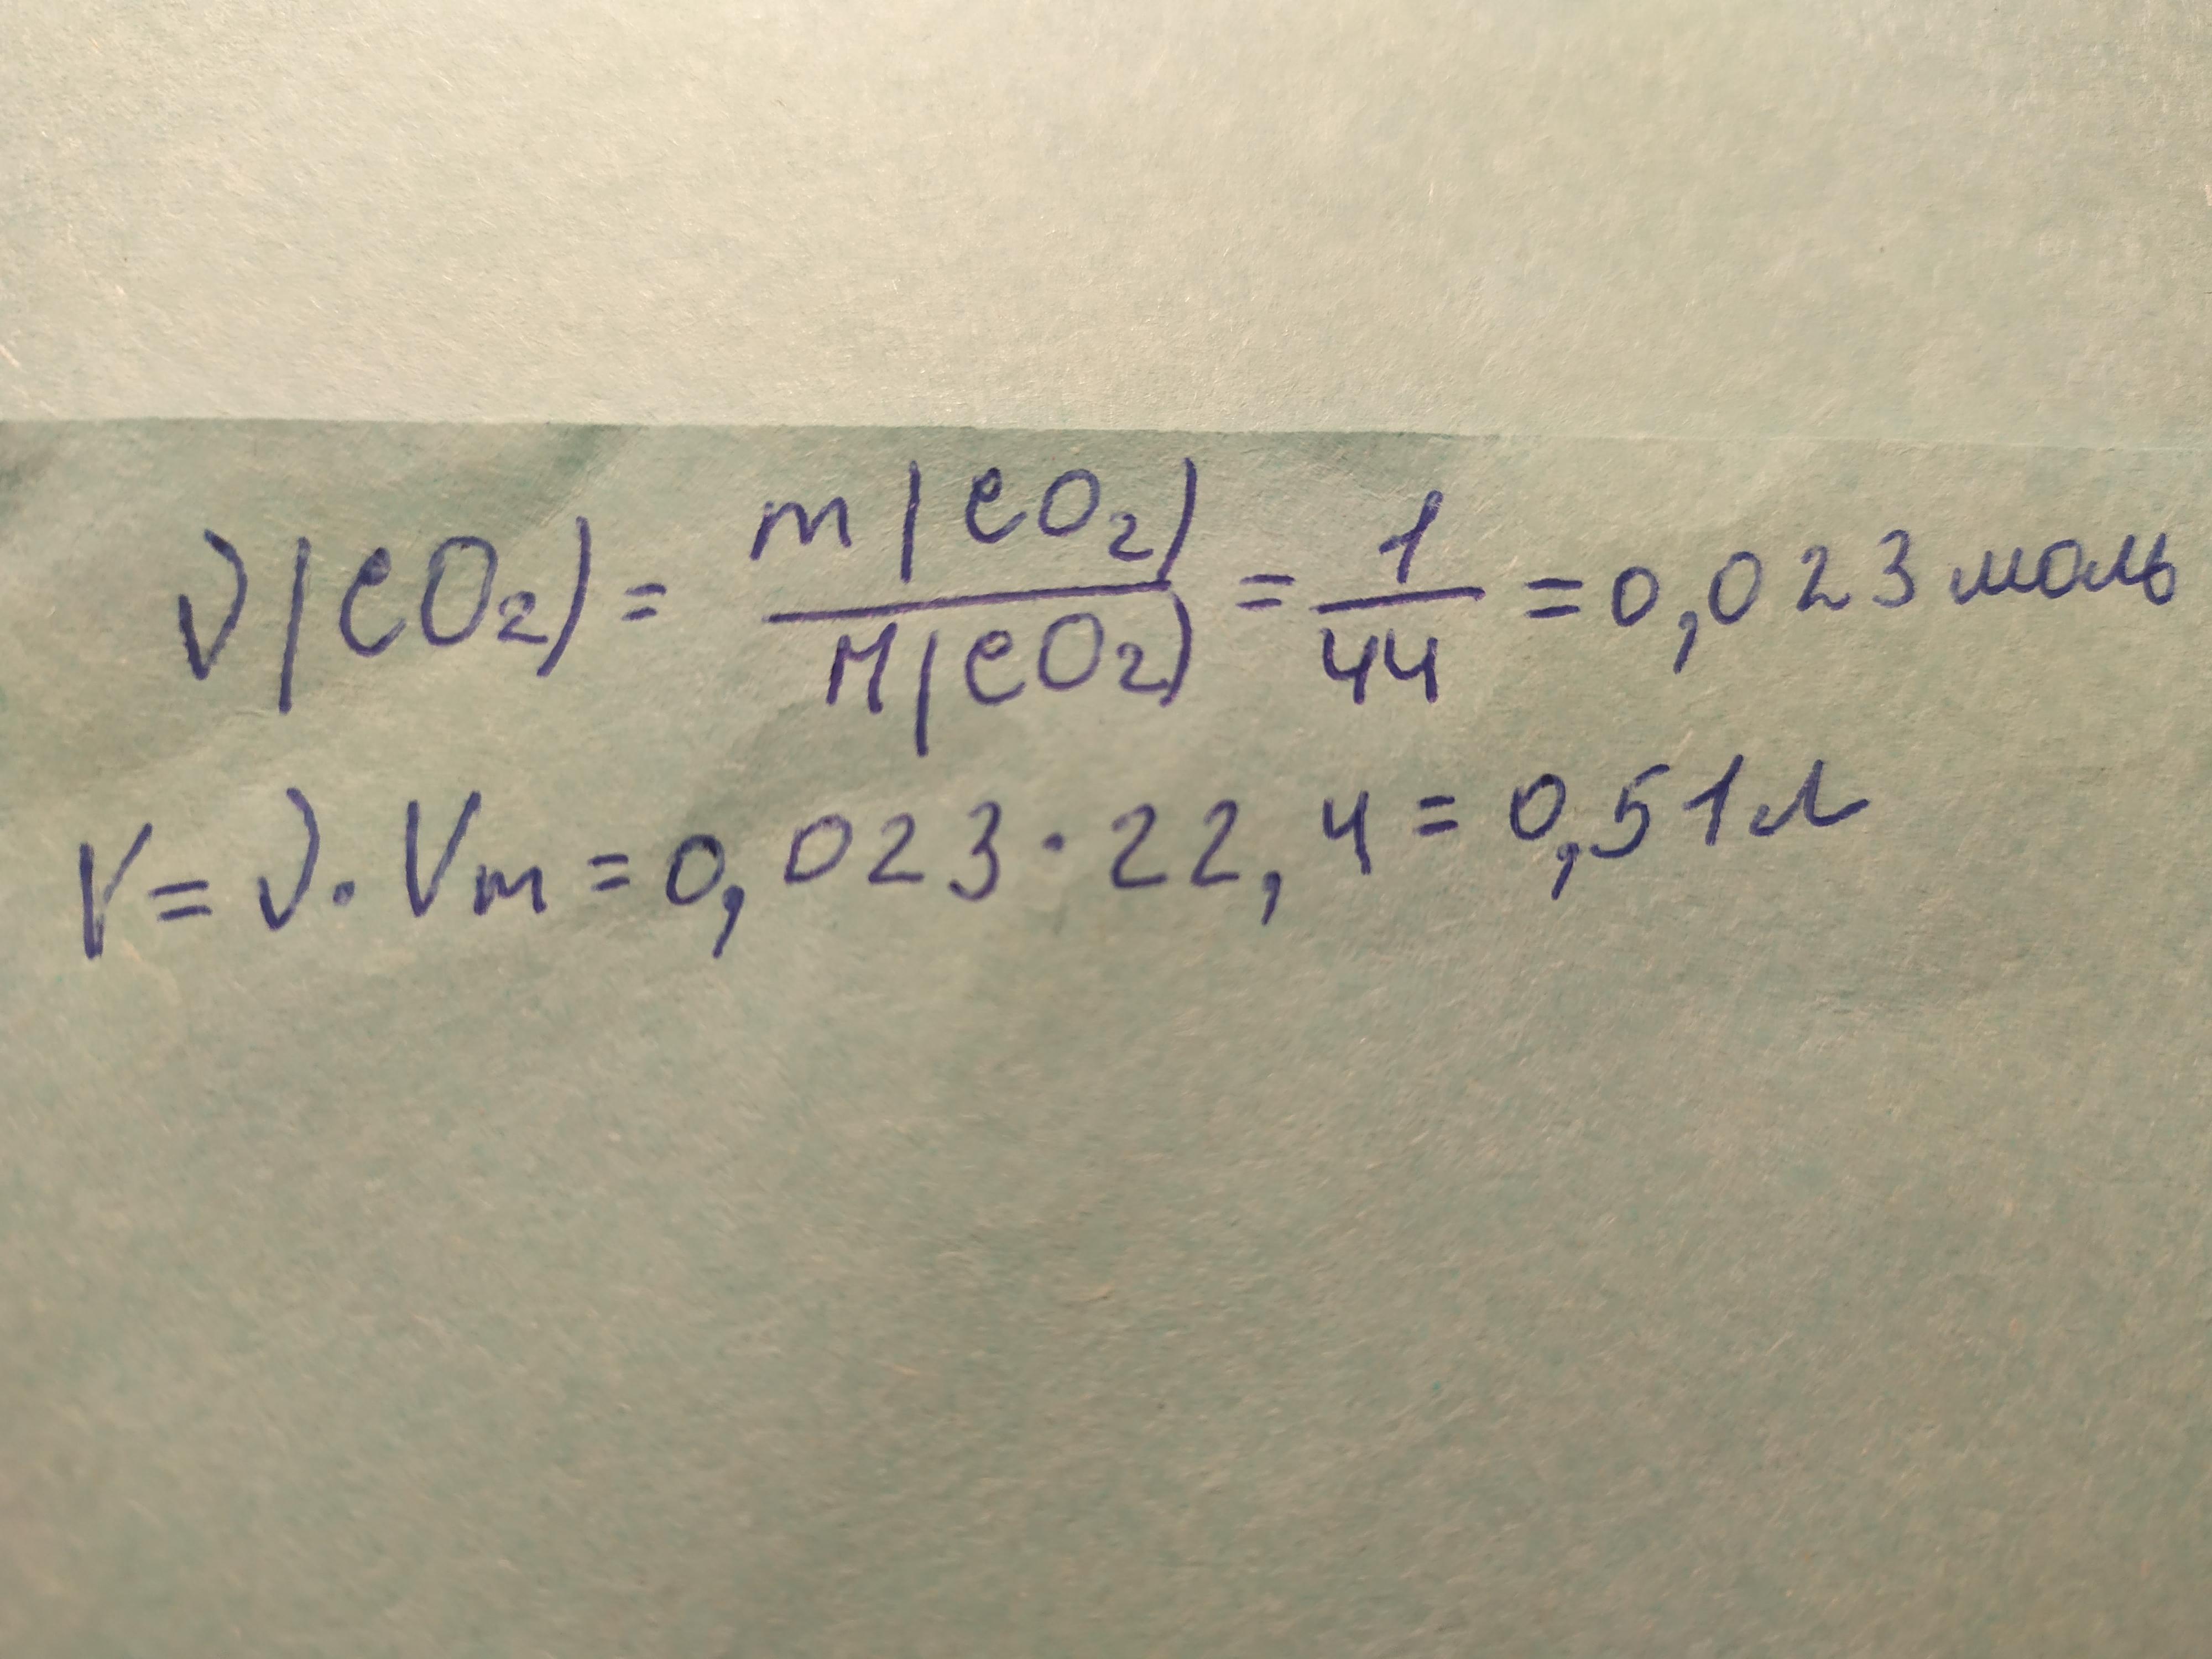 ν(CO₂) = m(CO₂)/M(CO₂) = 1/44 = 0,023 моль
V = ν · Vm = 0,023 · 22,4 = 0,51 л